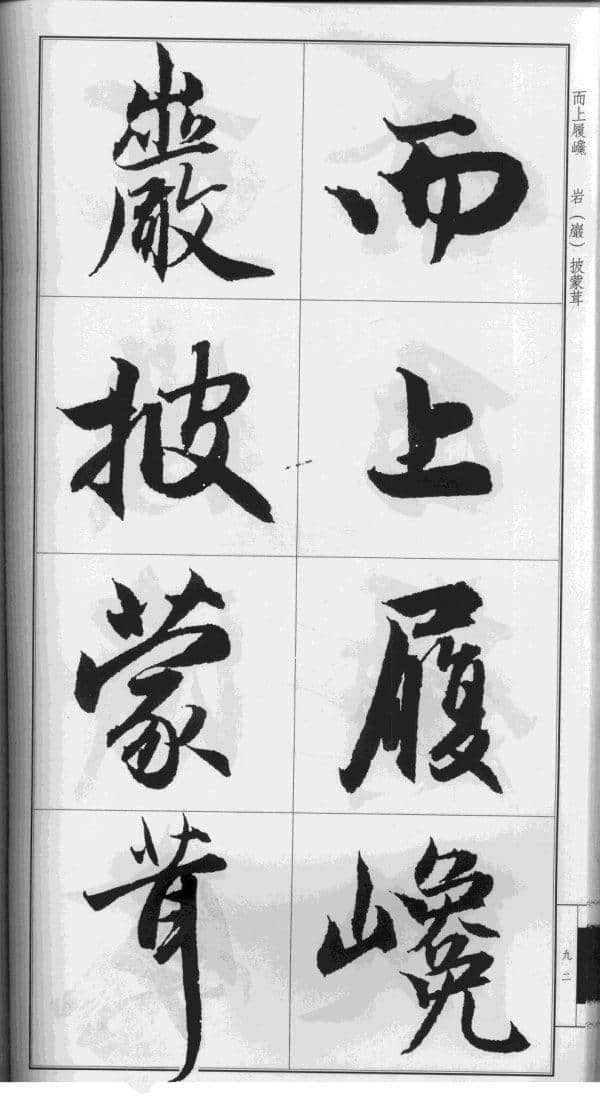 而上履巉
岩（巖）披蒙茸
而上履巉
巖披蒙茸
九二